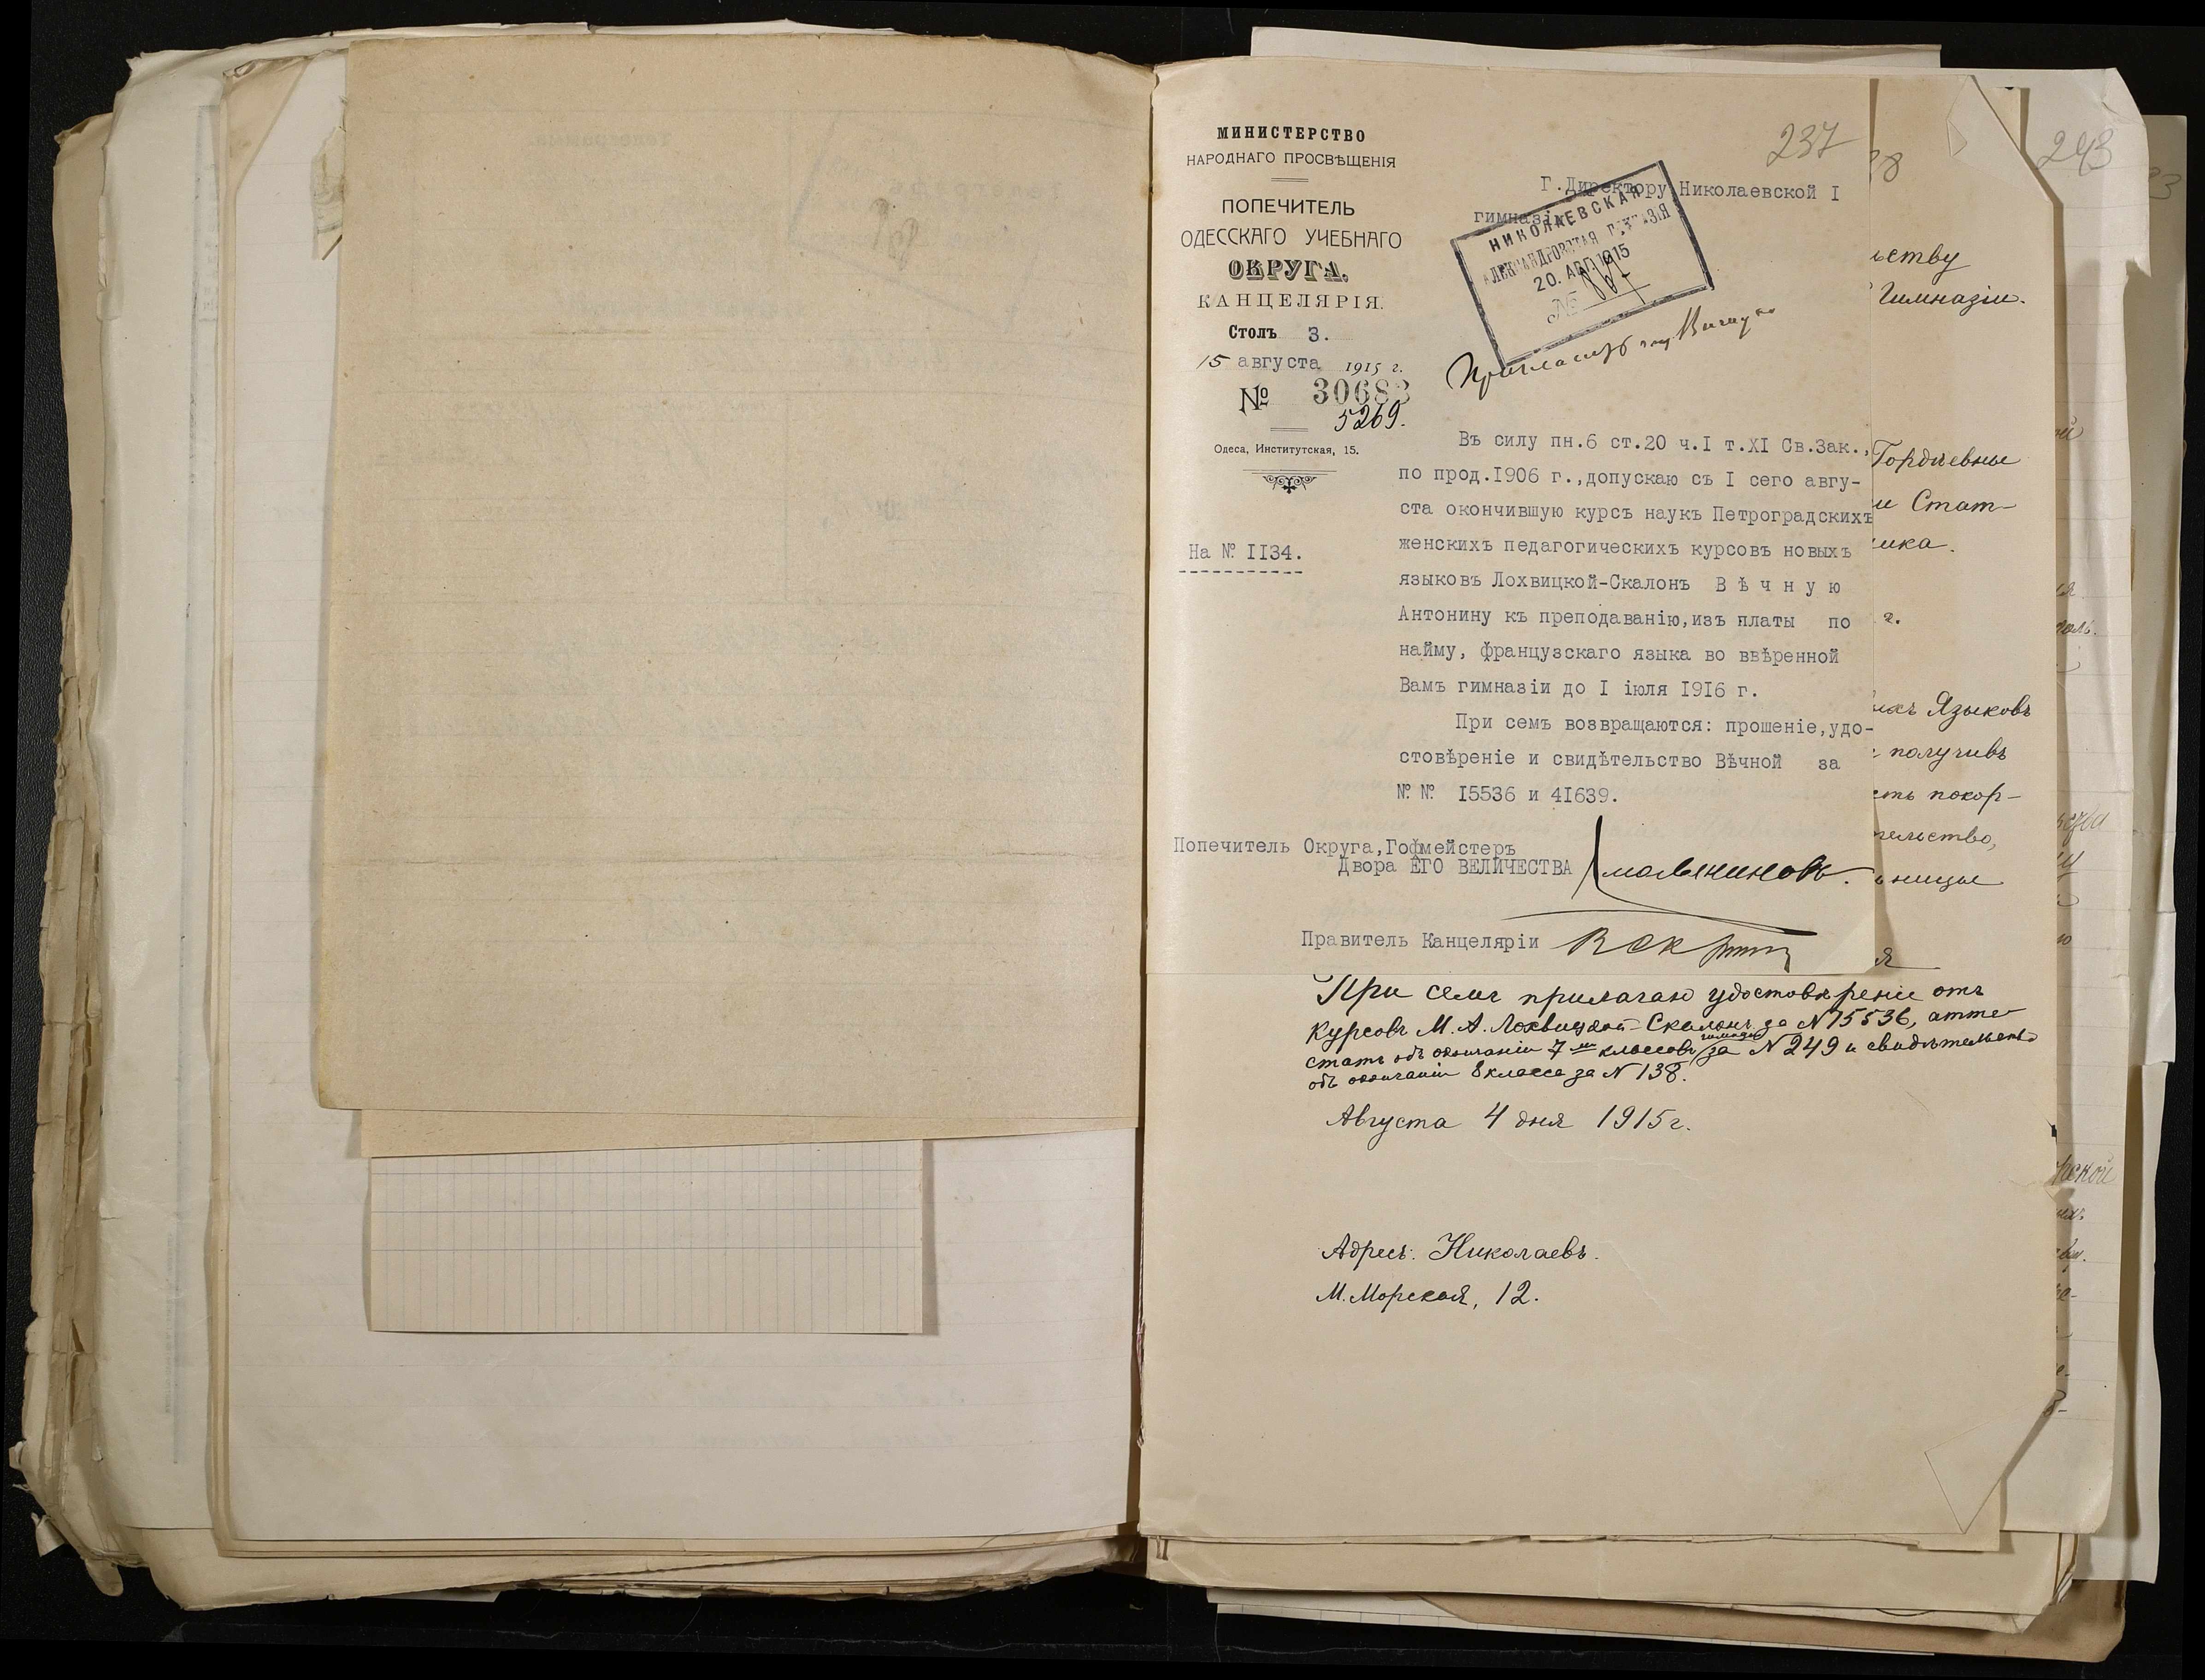 МИНИСТЕРСТВО
НАРОДНАГО ПРОСВѢЩЕНІЯ
ПОПЕЧИТЕЛЬ
ОДЕССКАГО УЧЕБНАГО
ОКРУГА.
КАНЦЕЛЯРІЯ.
Столъ 3.
15 августа 1915 г.
№ 30683
5269.
Одеса, Институтская, 15.
На № II34.
237
Г.Директору Николаевской I
гимназіи
НИКОЛАЕВСКАЯ
АЛЕКСАНДРОВСКАЯ ГИМНАЗІЯ
20. АВГ. 1915
№
Въ силу пн.6 ст.20 ч.I т.XI Св.Зак.,
по прод.I906 г.,допускаю съ I сего авгу-
ста окончившую курсъ наукъ Петроградскихъ
женскихъ педагогическихъ курсовъ новыхъ
языковъ Лохвицкой-Скалонъ В ѣ ч н у ю
Антонину къ преподаванію,изъ платы по
найму, французскаго языка во ввѣренной
Вамъ гимназіи до I іюля I9I6 г.
При семъ возвращаются: прошеніе,удо-
стовѣреніе и свидѣтельство Вѣчной за
№ № I5536 и 4I639.
Попечитель Округа,Гофмейстеръ
Двора ЕГО ВЕЛИЧЕСТВА
Правитель Канцеляріи
При семъ прилагаю удостовѣреніе отъ
курсовъ М. А. Лохвицкой-Скалонъ за N 15536, атте-
статъ объ окончаніи 7ми классовъ гимназіи за N 249 и свидѣтельство
объ окончаніи 8 класса за N 138.
Августа 4 дня 1915 г.
Адресъ: Николаевъ.
М. Морская, 12.
38
ьству
Гимназіи.
Гордѣевны
и Стат-
ика.
г.
ихъ Языковъ
получивъ
сть покор-
тельство,
ницы
я
243